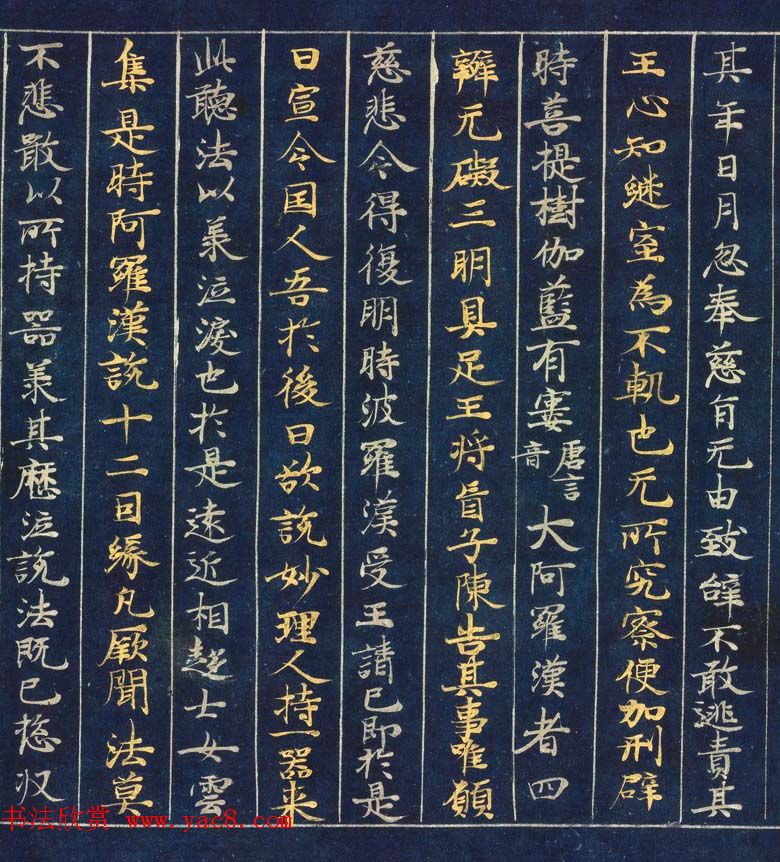 其年日月忽奉慈旨无由致辞不敢逃責其
王心知継室為不軌也无所究察便加刑辟
時菩提樹伽藍有寠唐言音大阿羅漢者四
辯无礙三明具足王将盲子陳告其事唯願
慈悲令得復明時波羅漢受王請已即扵是
日宣令囯人吾扵後日欲説妙理人持一器来
此聽法以羕泣淚也扵是遠近相趍士女雲
集是時阿羅漢説十二因緣凡厥聞法莫
不悲敢以所持器羕其歷泣説法既已揔収
书法欣赏 www.yac8.com